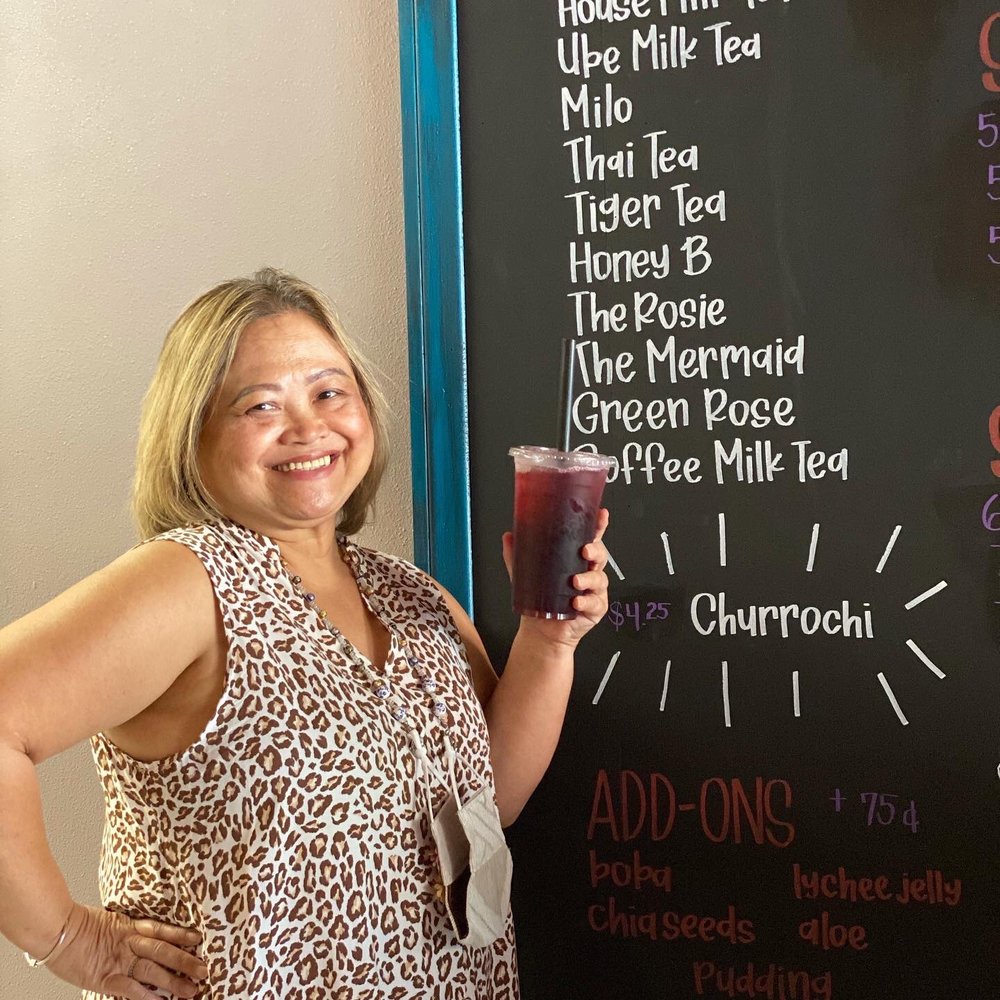 House Milk Tea
Ube Milk Tea
Milo
Thai Tea
Tiger Tea
Honey B
The Rosie
The Mermaid
Green Rose
Coffee Milk Tea
$4.25 Churrochi
ADD-ONS + 75¢
boba lychee jelly
chia seeds aloe
Pudding
5
5
5
6